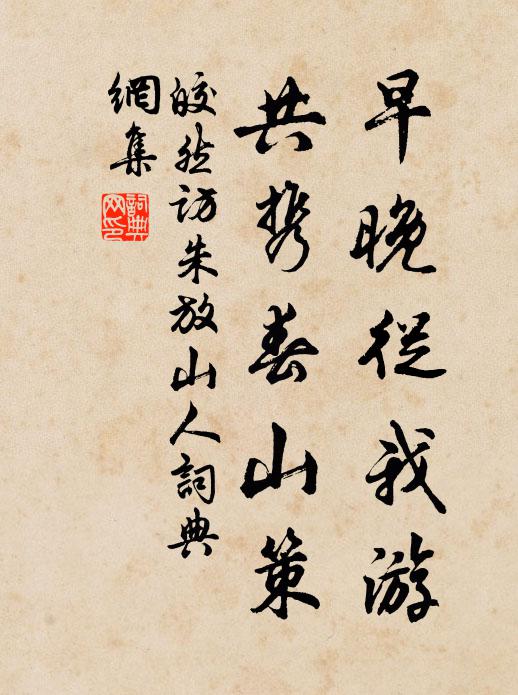 早晚從我游
共携春山策
皎然访朱放山人詞典
網集
詞典
网印